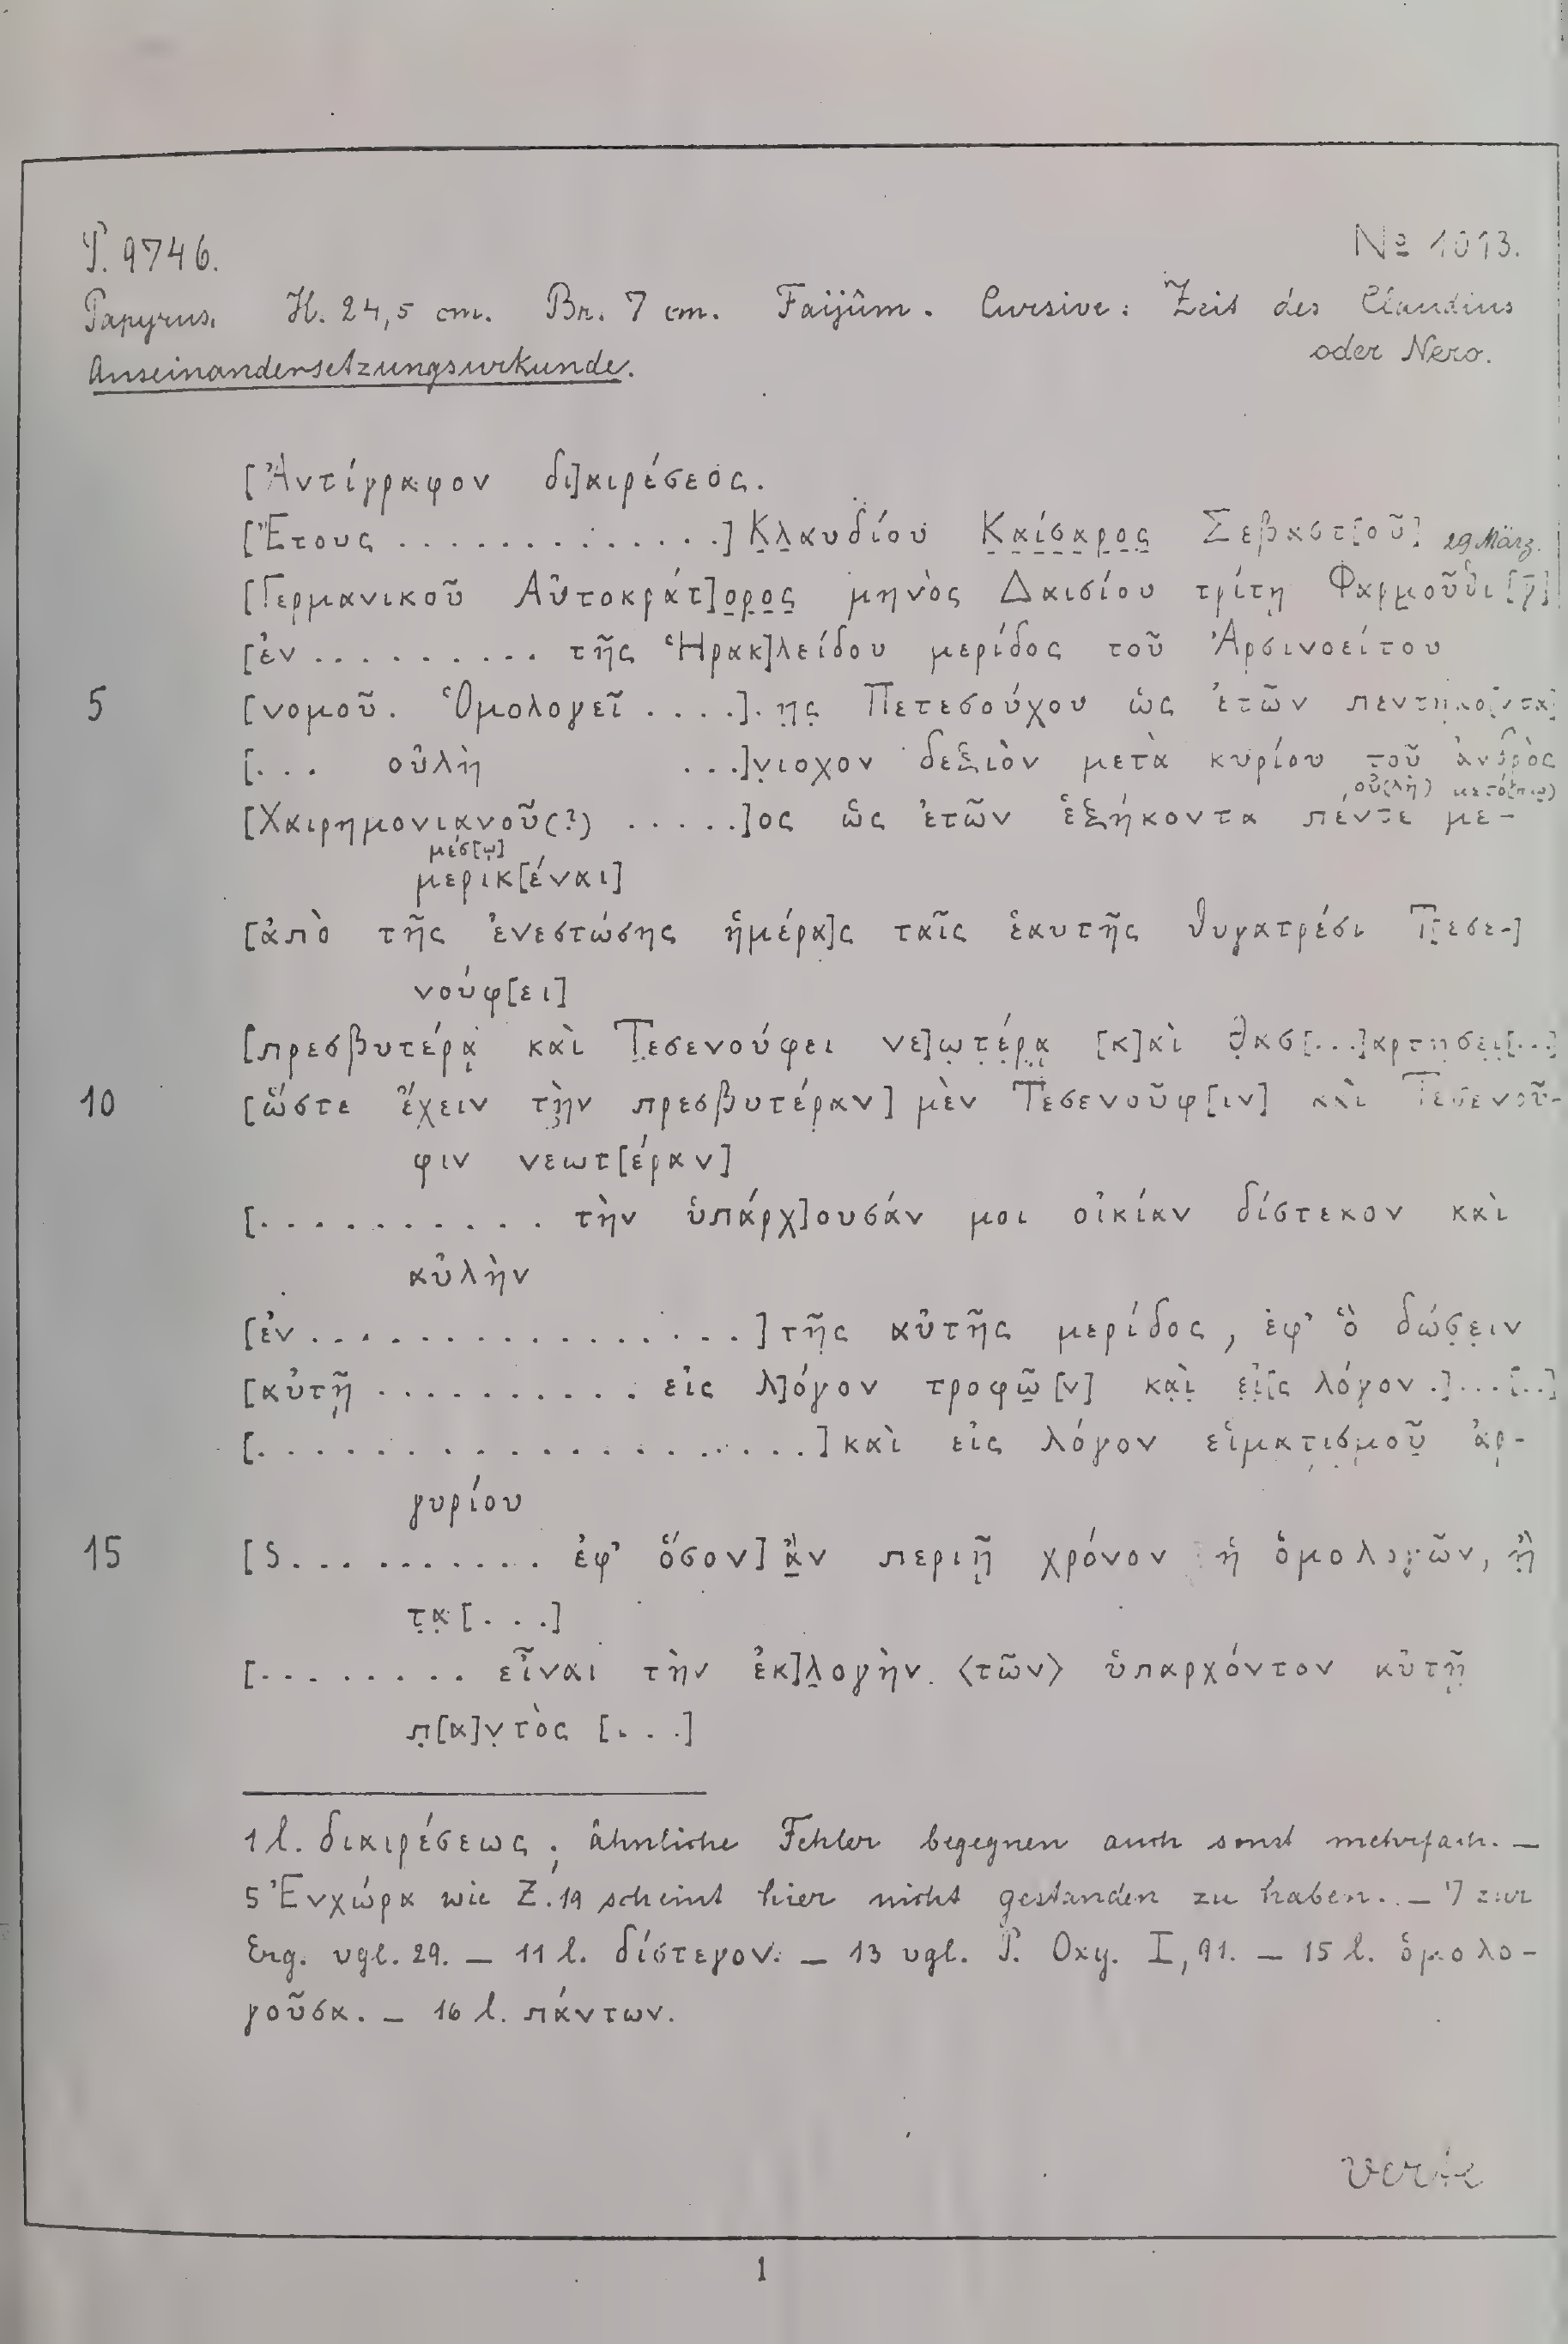 P. 9746. № 1013.
Papyrus. H. 24,5 cm. Br. 7 cm. Faijûm. Cursive: Zeit des Claudius
oder Nero.
Auseinandersetzungsurkunde.
[Ἀντίγραφον δι]αιρέσεος.
[Ἔτους .............] Κ̣λ̣αυδίου Κ̣α̣ί̣σ̣α̣ρ̣ο̣ς̣ Σεβαστ[οῦ] 29 März.
[Γερμανικοῦ Αὐτοκράτ]ο̣ρ̣ο̣ς̣ μηνὸς Δαισίου τρίτῃ Φαρμοῦθι [γ̅]
[ἐν .......... τῆς Ἡρακ]λείδου μερίδος τοῦ Ἀρσινοείτου
5 [νομοῦ. Ὁμολογεῖ ....].η̣ς̣ Πετεσούχου ὡς ἐτῶν πεντήκο[ντα]
[... οὐλὴ ...]ν̣ιοχον δεξιὸν μετὰ κυρίου τοῦ ἀνδρὸς
οὐ(λὴ) μετό(πῳ)
[Χαιρημονιανοῦ(?) .....]ος ὡς ἐτῶν ἑξήκοντα πέντε με-
μέσ[ῳ]
μερικ[έναι]
[ἀπὸ τῆς ἐνεστώσης ἡμέρα]ς ταῖς ἑαυτῆς θυγατρέσι Τ[εσε-]
νούφ[ει]
[πρεσβυτέρᾳ καὶ Τεσενούφει νε]ω̣τ̣έ̣ρ̣ᾳ [κ]αὶ θ̣ασ[...]αρτησει[...]
10 [ὥστε ἔχειν τὴν πρεσβυτέραν] μὲν Τεσενοῦφ[ιν] καὶ Τεσενοῦ-
φιν νεωτ[έραν]
[........... τὴν ὑπάρχ]ουσάν μοι οἰκίαν δίστεκον καὶ
αὐλὴν
[ἐν .................]τῆς αὐτῆς μερίδος, ἐφ' ὃ δώσ̣ε̣ιν
[αὐτῇ .......... εἰς λ]όγον τροφῶ̣[ν] κα̣ὶ̣ ε̣ἰ̣[ς λόγον .]...[..]
[......................]καὶ εἰς λόγον εἱματι̣σ̣μοῦ̣ ἀρ-
γυρίου
15 [S........... ἐφ' ὅσον] ἂ̣ν περιῇ χρόνον ἡ ὁμολογῶν, ἢ
τ̣α̣[...]
[......... εἶναι τὴν ἐκ]λ̣ογὴν. ⟨τῶν⟩ ὑπαρχόντον αὐτῇ
π̣[α]ν̣τὸς [...]
1 l. διαιρέσεως; ähnliche Fehler begegnen auch sonst mehrfach. —
5 Ἐνχώρα wie Z. 19 scheint hier nicht gestanden zu haben. — 7 zur
Erg. vgl. 29. — 11 l. δίστεγον. — 13 vgl. P. Oxy. I, 91. — 15 l. ὁμολο-
γοῦσα. — 16 l. πάντων.
verte
1